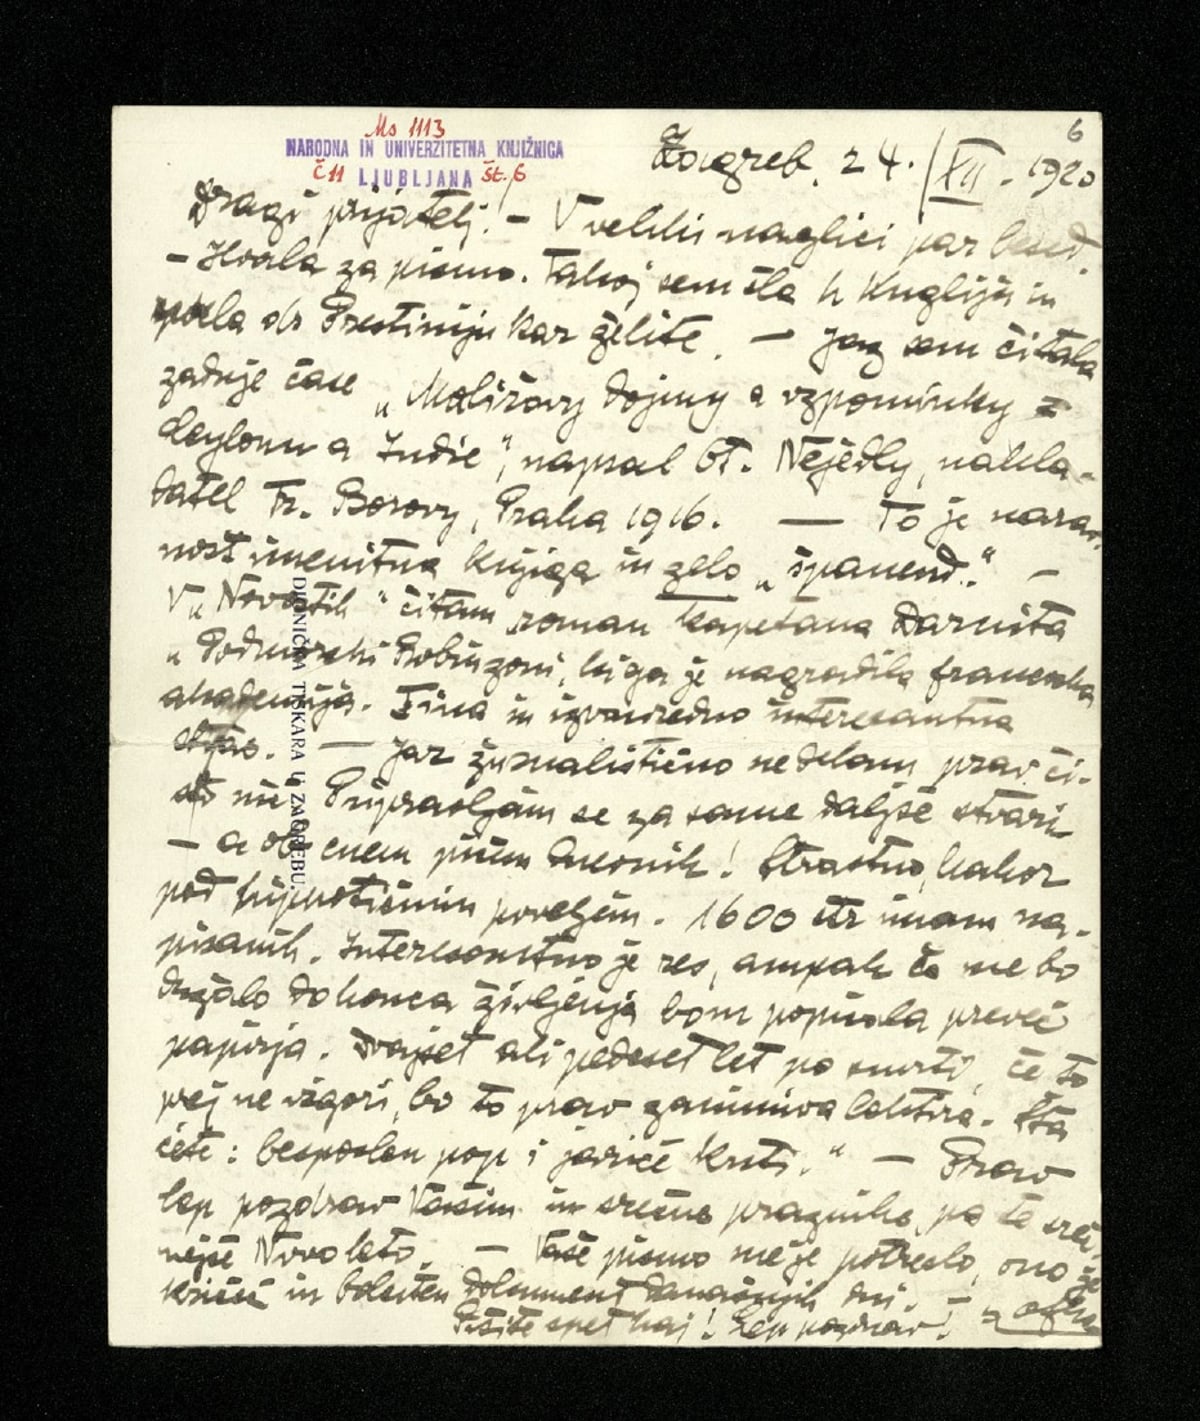 6
Ms 1113
NARODNA IN UNIVERZITETNA KNJIŽNICA
Č 11 LJUBLJANA Št. 6
Zagreb, 24./XII. 1920
Dragi prijatelj! – V veliki naglici par besed.
– Hvala za pismo. Takoj sem šla h Kugliju in
dr Prestiniju kar želite. – Jaz sem čitala
zadnje čase „Malířovy dojmy a vzpomínky z
Ceylonu a Indie", napsal Ot. Nejedlý, nakla-
datel Fr. Borový, Praha 1916. — To je narav-
nost imenitna knjiga in zelo „španend." –
V „Novostih" čitam roman kapetana Darnita
„Podmorski Robinzoni, ki ga je nagradila francoska
akademija. Fina in izvanredno interesantna
stvar. — Jaz žurnalistično ne delam prav či-
sto nič. Pripravljam se za same daljše stvari
– a ob enem pišem dnevnik! Strastno, kakor
pod hipnotičnim poveljem. 1600 str imam na-
pisanih. Interesantno je res, ampak če ne bo
držalo do konca življenja bom popisala preveč
papirja. Dvajset ali pedeset let po smrti, če to
prej ne izgori, bo to prav zanimiva lektira. Šta
ćete: besposlen pop i jariće krsti." – Prav
lep pozdrav Vašim in srečne praznike, pa še sreč-
nejše Novo leto. – Vaše pismo me je potreslo, ono je
kričeč in bolesten dokument današnjih dni. –
Pišite spet kaj! Lep pozdrav!
DIONIČKA TISKARA U ZAGREBU.